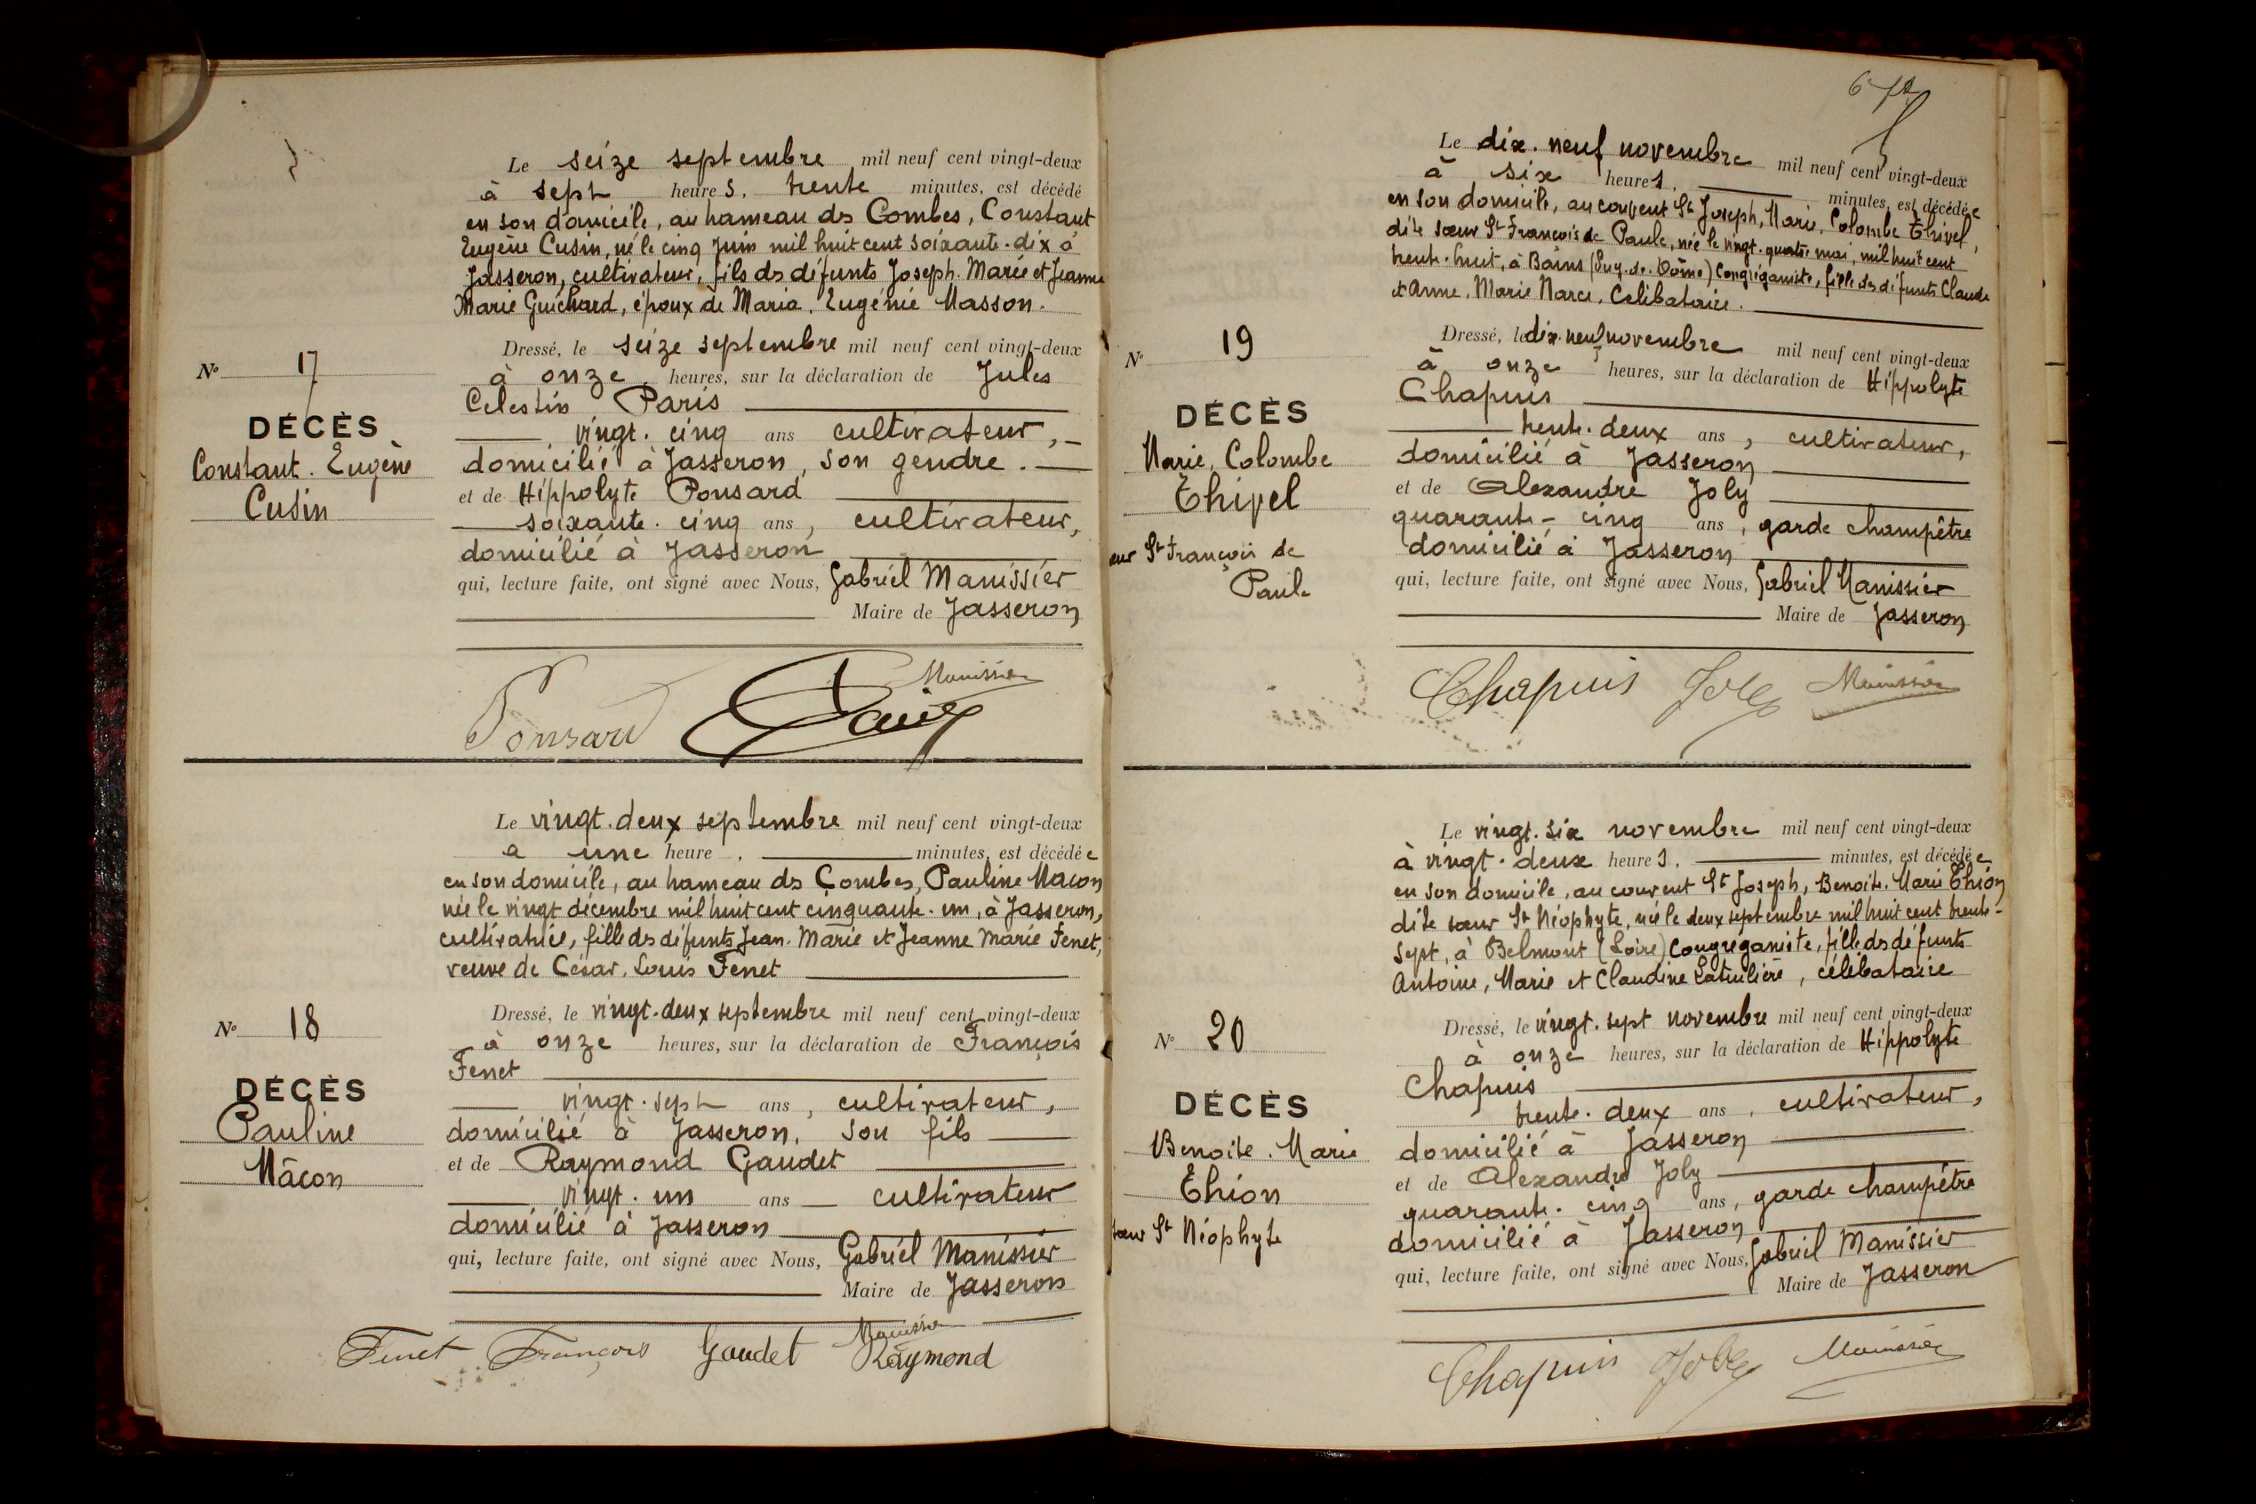 Le seize septembre mil neuf cent vingt-deux
à sept heures, trente minutes, est décédé
en son domicile, au hameau des Combes, Constant
Eugène Cusin, né le cinq Juin mil huit cent soixante-dix à
Jasseron, cultivateur, fils des défunts Joseph. Marie et Jeanne
Marie Guichard, époux de Maria. Eugénie Masson.
Nº 17
DÉCÈS
Constant. Eugène
Cusin
Dressé, le seize septembre mil neuf cent vingt-deux
à onze heures, sur la déclaration de Jules
Celestin Paris
vingt. cinq ans cultivateur,
domicilié à Jasseron, son gendre.
et de Hippolyte Ponsard
soixante. cinq ans, cultivateur,
domicilié à Jasseron
qui, lecture faite, ont signé avec Nous, Gabriel Manissier
Maire de Jasseron
Manissier
Ponsard Paris
Le vingt. deux septembre mil neuf cent vingt-deux
a une heure, minutes, est décédée
en son domicile, au hameau des Combes, Pauline Macon
née le vingt décembre mil huit cent cinquante. un, à Jasseron,
cultivatrice, fille des défunts Jean. Marie et Jeanne Marie Fenet,
veuve de César. Louis Fenet
Nº 18
DÉCÈS
Pauline
Mâcon
Dressé, le vingt. deux septembre mil neuf cent vingt-deux
à onze heures, sur la déclaration de François
Fenet
vingt. sept ans, cultivateur,
domicilié à Jasseron, son fils
et de Raymond Gaudet
vingt. un ans cultivateur
domicilié à Jasseron
qui, lecture faite, ont signé avec Nous, Gabriel Manissier
Maire de Jasseron
Manissier
Fenet François Gaudet Raymond
Le dix. neuf novembre mil neuf cent vingt-deux
à six heures, minutes, est décédée
en son domicile, au couvent St Joseph, Marie. Colombe Thivel,
dite sœur St François de Paule, née le vingt. quatre mai, mil huit cent
trente. huit, à Bains (Puy. de. Dôme) Congréganiste, fille des défunts Claude
et Anne. Marie Narce. Célibataire.
Nº 19
DÉCÈS
Marie. Colombe
Thivel
œur St François de
Paule
Dressé, le dix. neuf novembre mil neuf cent vingt-deux
à onze heures, sur la déclaration de Hippolyte
Chapuis
trente. deux ans, cultivateur,
domicilié à Jasseron
et de Alexandre Joly
quarante - cinq ans, garde champêtre
domicilié à Jasseron
qui, lecture faite, ont signé avec Nous, Gabriel Manissier
Maire de Jasseron
Chapuis Joly Manissier
Le vingt. six novembre mil neuf cent vingt-deux
à vingt. deux heures, minutes, est décédée
en son domicile, au couvent St Joseph, Benoite. Marie Thion
dite sœur St Néophyte, née le deux septembre mil huit cent trente-
sept, à Belmont (Loire) Congréganiste, fille des défunts
Antoine, Marie et Claudine Latulière, célibataire
Nº 20
DÉCÈS
Benoite. Marie
Thion
sœur St Néophyte
Dressé, le vingt. sept novembre mil neuf cent vingt-deux
à onze heures, sur la déclaration de Hippolyte
Chapuis
trente. deux ans, cultivateur,
domicilié à Jasseron
et de Alexandre Joly
quarante. cinq ans, garde champêtre
domicilié à Jasseron
qui, lecture faite, ont signé avec Nous, Gabriel Manissier
Maire de Jasseron
Chapuis Joly Manissier